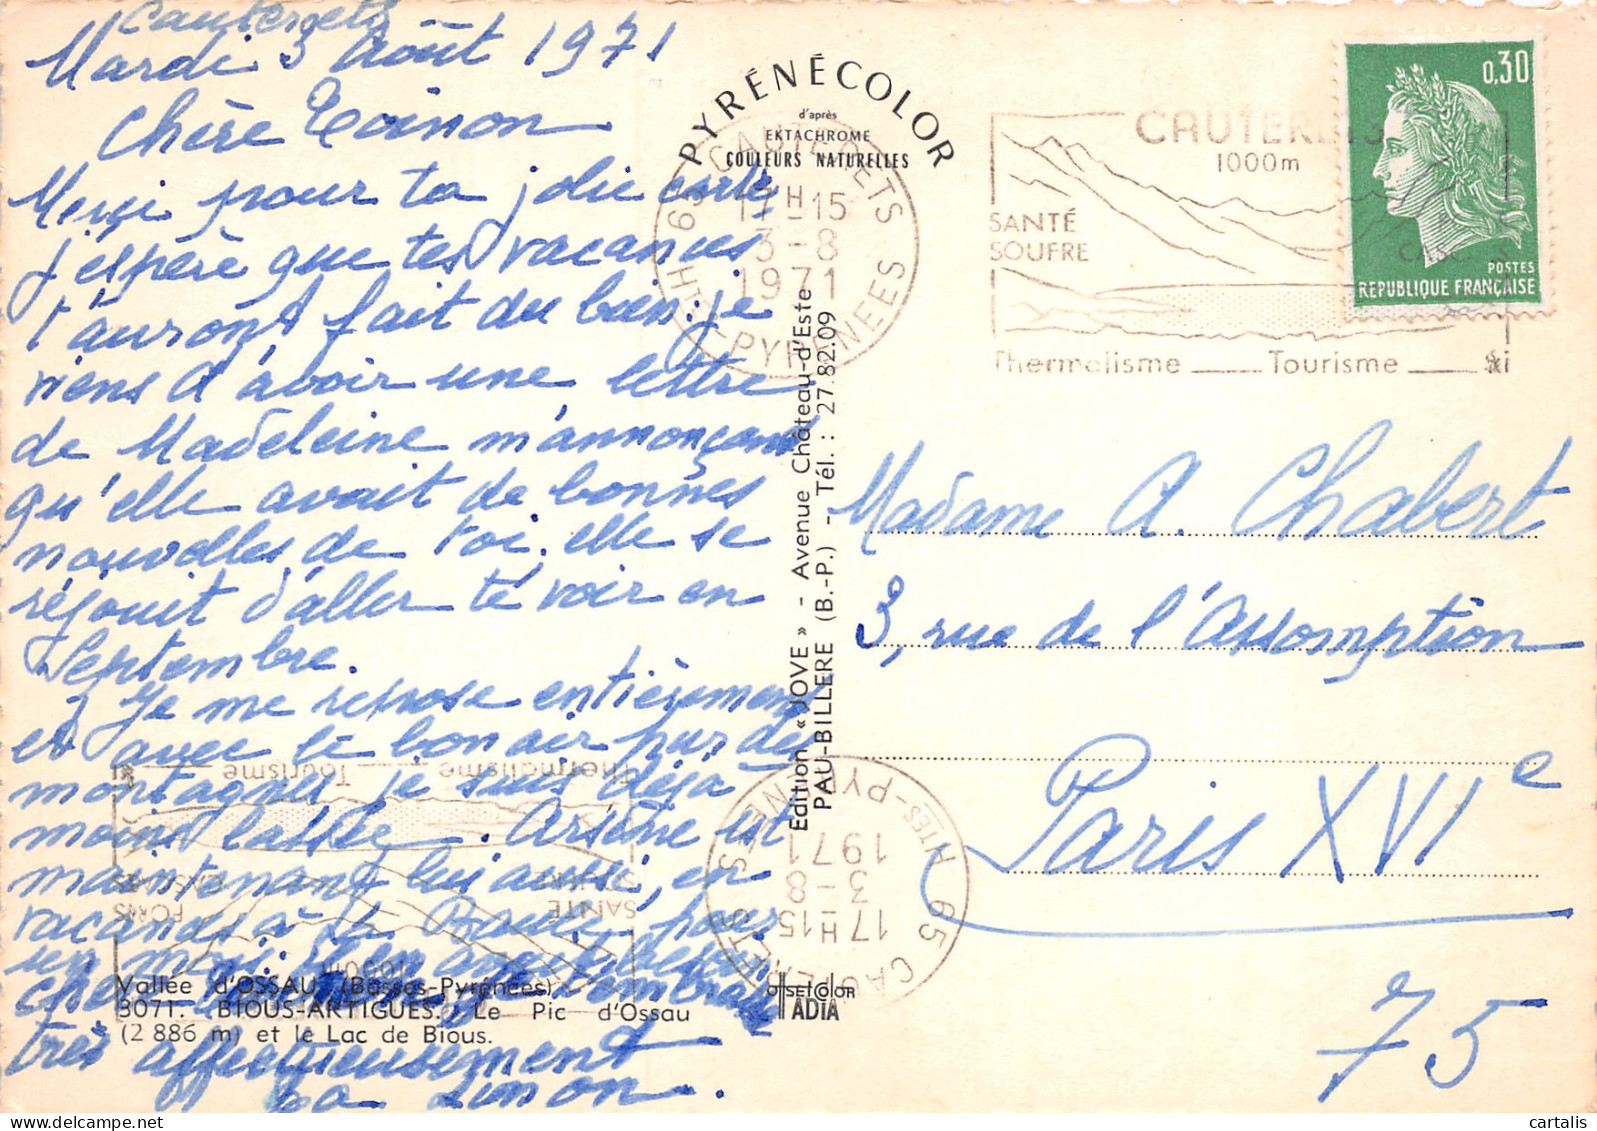 Cauterets
Mardi 3 Août 1971
Chère Toinon
Merci pour ta jolie carte
j'espère que tes vacances
t'auront fait du bien. je
viens d'avoir une lettre
de Madeleine m'annonçant
qu'elle avait de bonnes
nouvelles de toi. elle se
réjouit d'aller te voir en
Septembre.
Je me repose entièrement
et avec le bon air pur des
montagnes je suis déjà
moins lassée. Arsène est
maintenant lui aussi, en
vacances à La Baule, pour
un mois
très affectueusement
ta Linon.
Vallée d'OSSAU (Basses-Pyrénées)
3071. BIOUS-ARTIGUES. Le Pic d'Ossau
(2 886 m) et le Lac de Bious.
PYRÉNÉCOLOR
d'après
EKTACHROME
COULEURS NATURELLES
Edition «JOVE» - Avenue Château-d'Este
PAU-BILLERE (B.-P.) - Tél. : 27.82.09
OFFSETCOLOR
ADIA
65 CAUTERETS
17H15
3-8
1971
HTES-PYRENEES
CAUTERETS
1000m
SANTÉ
SOUFRE
Thermalisme Tourisme Ski
0,30
POSTES
REPUBLIQUE FRANÇAISE
Madame A. Chabert
3, rue de l'Assomption
Paris XVIe
75
Thermalisme Tourisme
SANTÉ
1000m
65 CAUTERETS
17H15
3-8
1971
HTES-PYRENEES
cartalis